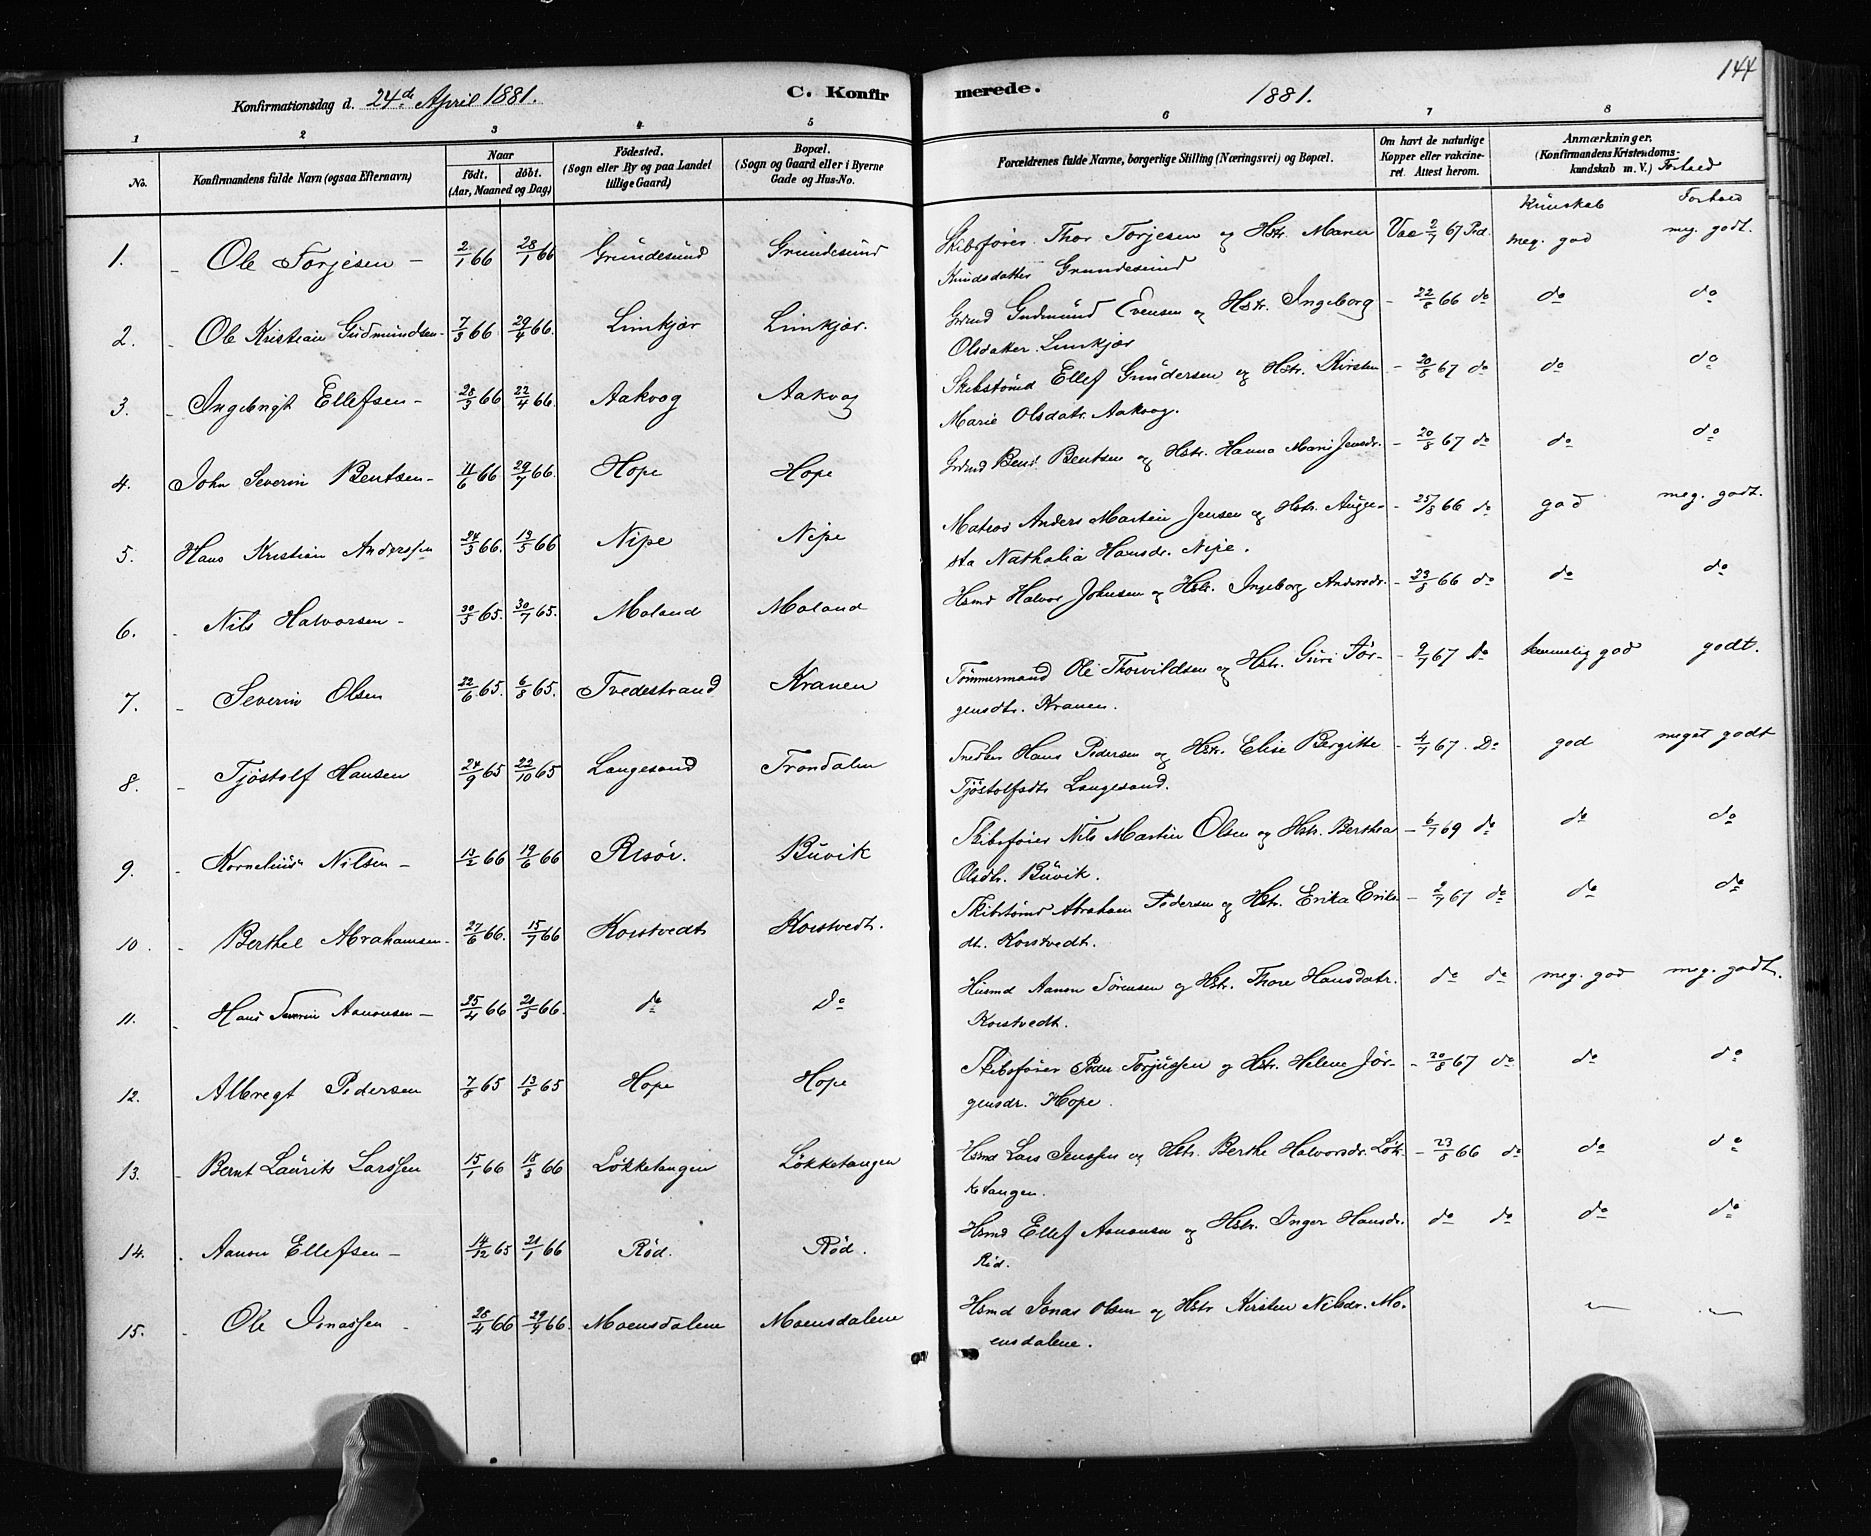 144
Konfirmationsdag d. 24de April 1881. C. Konfirmerede. 1881.
1 2 3 4 5 6 7 8
No. Konfirmandens fulde Navn (ogsaa Efternavn) Naar født. døbt. (Aar, Maaned og Dag) Fødested. (Sogn eller By og paa Landet tillige Gaard) Bopæl. (Sogn og Gaard eller i Byerne Gade og Hus-No. Forældrenes fulde Navne, borgerlige Stilling (Næringsvei) og Bopæl. Om havt de naturlige Kopper eller vakcineret. Attest herom. Anmærkninger. (Konfirmandens Kristendomskundskab m. V.) Forhold
Kunskab Forhold
1. Ole Torjesen 2/1 66 28/1 66 Grundesund Grundesund Skibsfører Thor Torjesen og Hstr. Maren Vac 2/7 67 Prd. meg. god meg. godt.
Knudsdatter Grundesund
2. Ole Kristian Gudmundsen 7/3 66 29/4 66. Limkjær Limkjær. Grdmd Gudmund Evensen og Hstr. Ingeborg 22/8 66 do do do
Olsdatter Limkjær
3. Ingebrigt Ellefsen 28/3 66 22/4 66. Aakvog Aakvog Skibstømd Ellef Gundersen og Hstr. Kirsten 20/8 67 do do do
Marie Olsdatr. Aakvog.
4. John Severin Bentsen 11/6 66 29/7 66. Hope Hope Grdmd Bend. Bentsen og Hstr. Hanna Mari Jensdr. 20/8 67 do do do
5. Hans Kristian Anderssen 24/3 66. 13/5 66 Nipe Nipe Matros Anders Martin Jensen og Hstr. Augu- 25/8 66 do god meg. godt.
sta Nathalia Hansdr. Nipe.
6. Nils Halvorsen 30/5 65. 30/7 65. Moland Moland Hsmd Halvor Johnsen og Hstr. Ingeborg Andersdr. 23/8 66 do do do
7. Severin Olsen 22/6 65. 6/8 65. Tvedestrand Kranen Tømmermand Ole Thorvildsen og Hstr. Guri Jør- 9/7 67 Do temmelig god godt.
gensdtr. Kranen.
8. Tjøstolf Hansen 24/9 65 22/10 65 Langesand Trondalen Snedker Hans Pedersen og Hstr. Elise Bergitte 4/7 67. Do god meget godt
Tjøstolfsdtr Langesand.
9. Kornelius Nilsen 13/2 66 19/6 66 Risør. Buvik Skibsfører Nils Martin Olsen og Hstr. Berthea 6/7 69 do do do
Olsdtr. Buvik.
10. Berthel Abrahamsen 27/6 66. 15/7 66 Korstvedt Korstvedt. Skibstømd Abraham Pedersen og Hstr. Erika Eriks 2/7 67 do do do
dt. Korstvedt.
11. Hans Severin Aanonsen 25/4 66 21/5 66. do Do Husmd Aanon Sørensen og Hstr. Thore Hansdatr. do do meg. god meg. godt.
Korstvedt.
12. Albregt Pedersen 7/8 65 13/8 65 Hope Hope Skibsfører Peder Torjussen og Hstr. Helene Jør- 20/8 67 do do do
gensdr. Hope.
13. Bernt Laurits Larssen 15/1 66 18/3 66 Løkketangen Løkketangen Hsmd Lars Jenssen og Hstr. Berthe Halvorsdr. Løk- 23/8 66 do do do
ketangen.
14. Aanon Ellefsen 14/12 65 21/1 66 Rød. Rød. Hsmd Ellef Aanonsen og Hstr. Inger Hansdr. do do do do
Rød.
15. Ole Jonassen 25/4 66 29/4 66. Moensdalene Moensdalene Hsmd Jonas Olsen og Hstr Kirsten Nilsdr. Mo-
ensdalene.